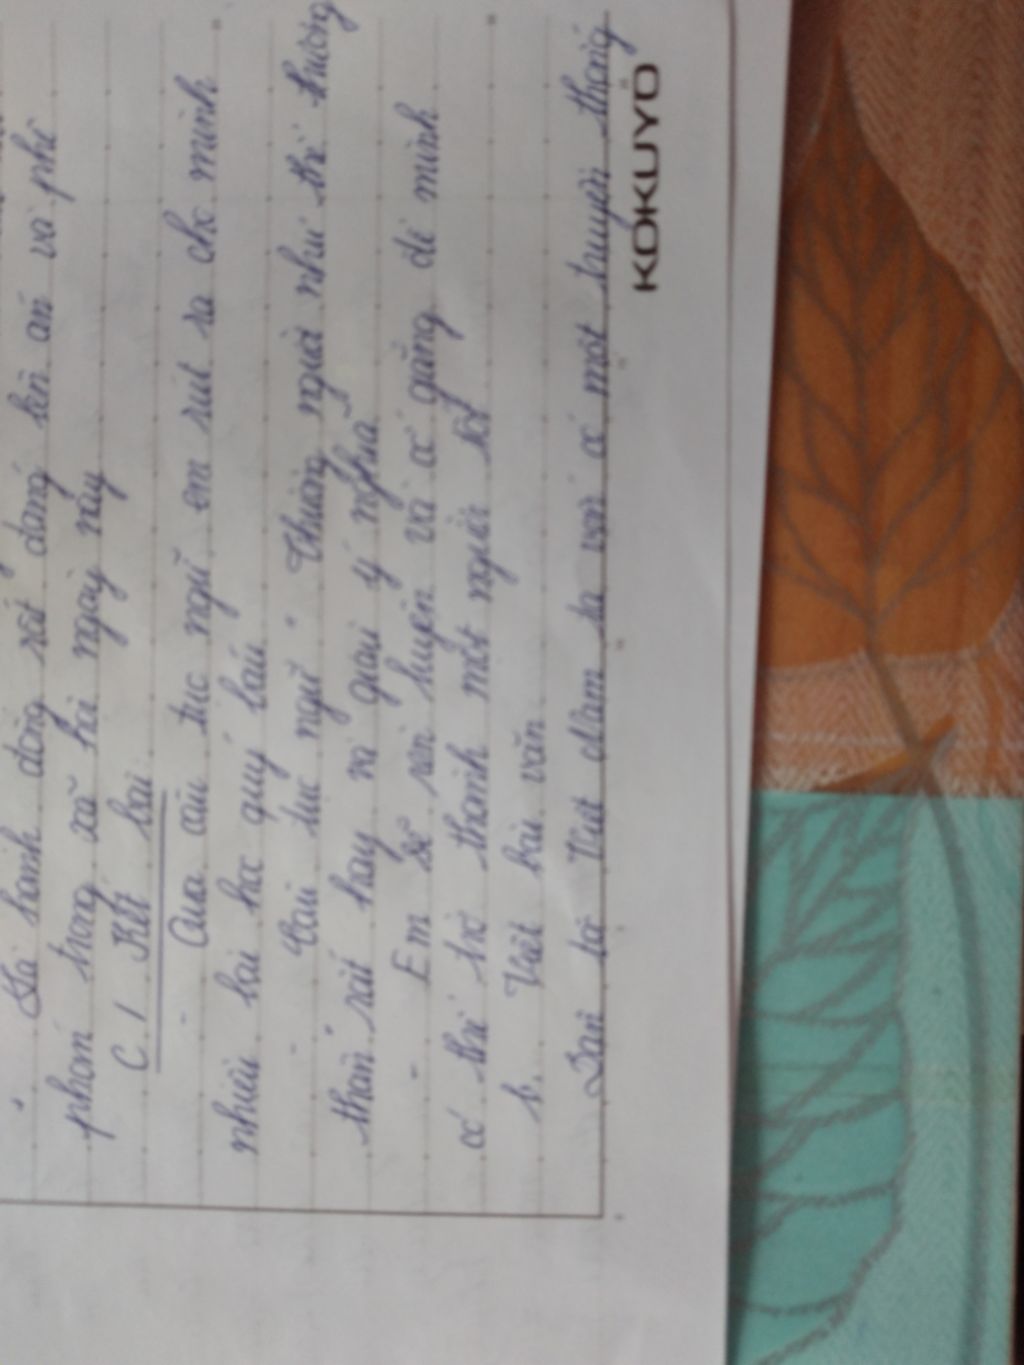 Là hành động rất đáng lên án và phê
phán trong xã hội ngày nay
C. / Kết bài
- Qua câu tục ngữ em rút ra cho mình
nhiều bài học quý báu
- Câu tục ngữ " Thương người như thể thương
thân" rất hay và giàu ý nghĩa
- Em sẽ rèn luyện và cố gắng để mình
có thể trở thành một người tốt
b. Viết bài văn
Dân tộc Việt Nam ta vốn có một truyền thống
KOKUYO